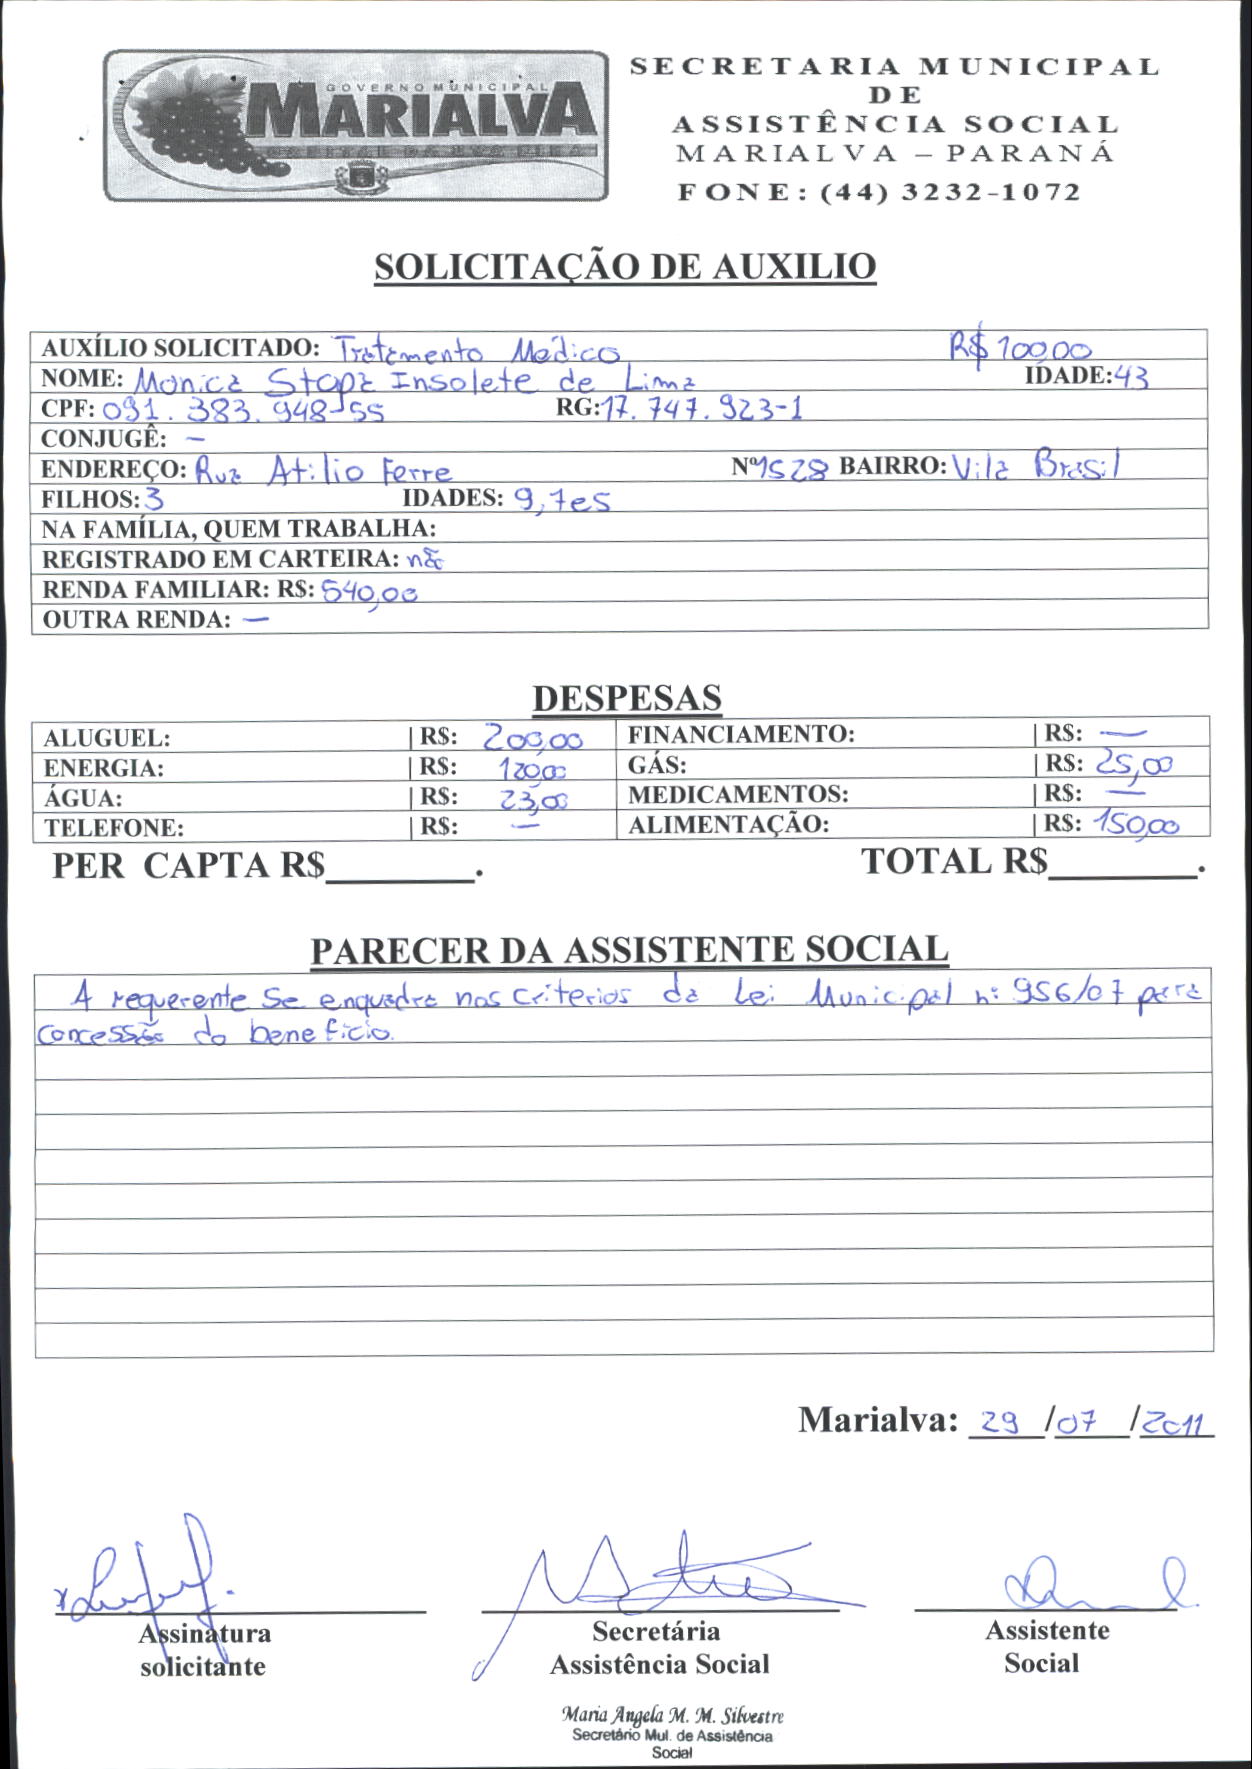 GOVERNO MUNICIPAL
MARIALVA
CAPITAL DA UVA FINA
SECRETARIA MUNICIPAL
DE
ASSISTÊNCIA SOCIAL
MARIALVA – PARANÁ
FONE: (44) 3232-1072
SOLICITAÇÃO DE AUXILIO
AUXÍLIO SOLICITADO: Tratamento Medico R$ 100,00
NOME: Monica Stopa Insolete de Lima IDADE: 43
CPF: 091.383.948-55 RG: 17.747.923-1
CONJUGÊ: —
ENDEREÇO: Rua Atilio Ferre Nº 1528 BAIRRO: Vila Brasil
FILHOS: 3 IDADES: 9, 7 e 5
NA FAMÍLIA, QUEM TRABALHA:
REGISTRADO EM CARTEIRA: não
RENDA FAMILIAR: R$: 540,00
OUTRA RENDA: —
DESPESAS
ALUGUEL: | R$: 200,00 FINANCIAMENTO: | R$: —
ENERGIA: | R$: 120,00 GÁS: | R$: 25,00
ÁGUA: | R$: 23,00 MEDICAMENTOS: | R$: —
TELEFONE: | R$: — ALIMENTAÇÃO: | R$: 150,00
PER CAPTA R$________. TOTAL R$________.
PARECER DA ASSISTENTE SOCIAL
A requerente se enquadra nos criterios da Lei Municipal nº 956/07 para
concessão do beneficio.
Marialva: 29 /07 /2011
Assinatura
solicitante
Secretária
Assistência Social
Assistente
Social
Maria Angela M. M. Silvestre
Secretário Mul. de Assistência
Social